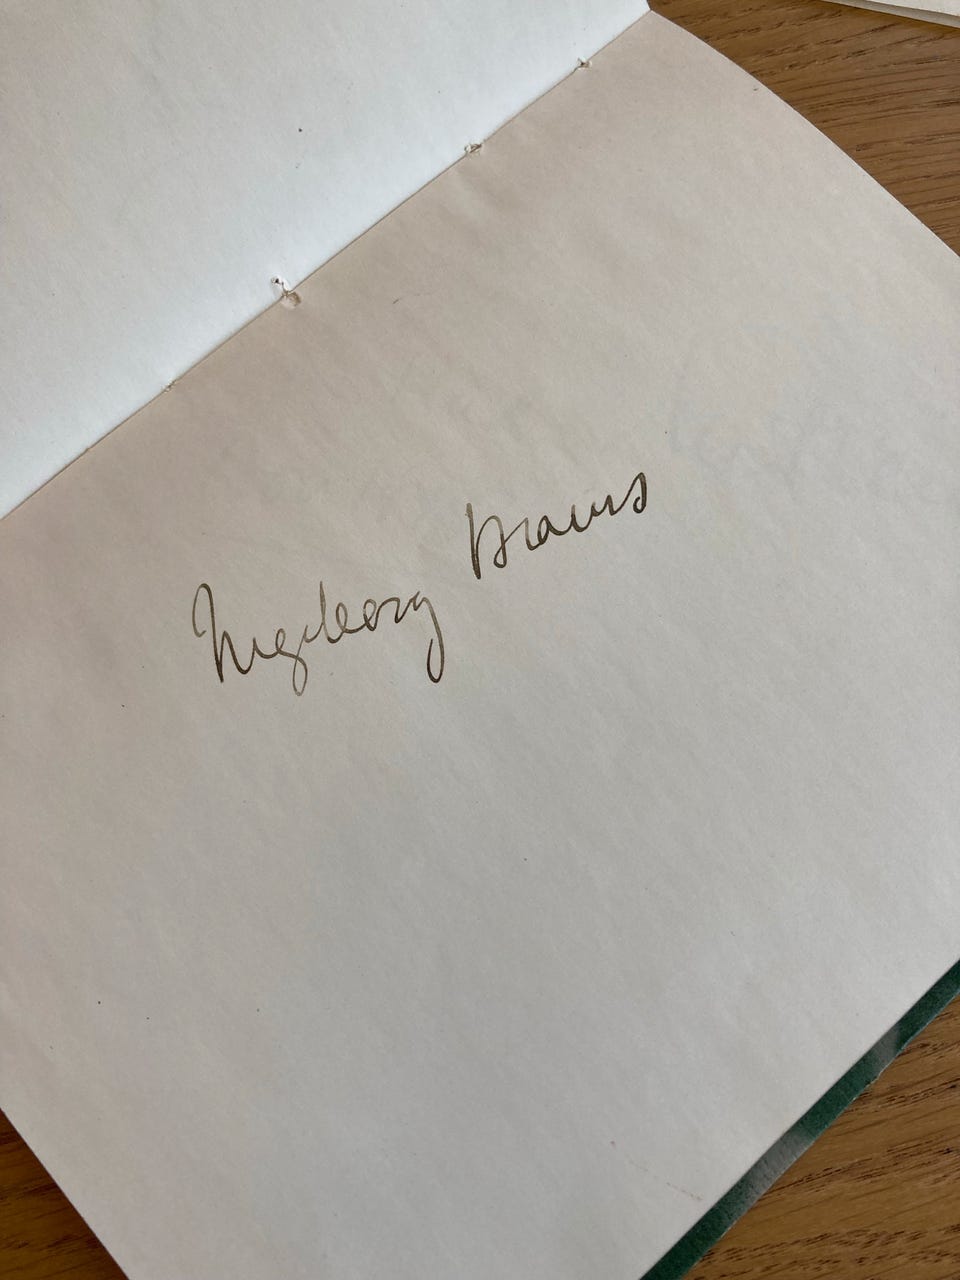 Ingeborg Brauns